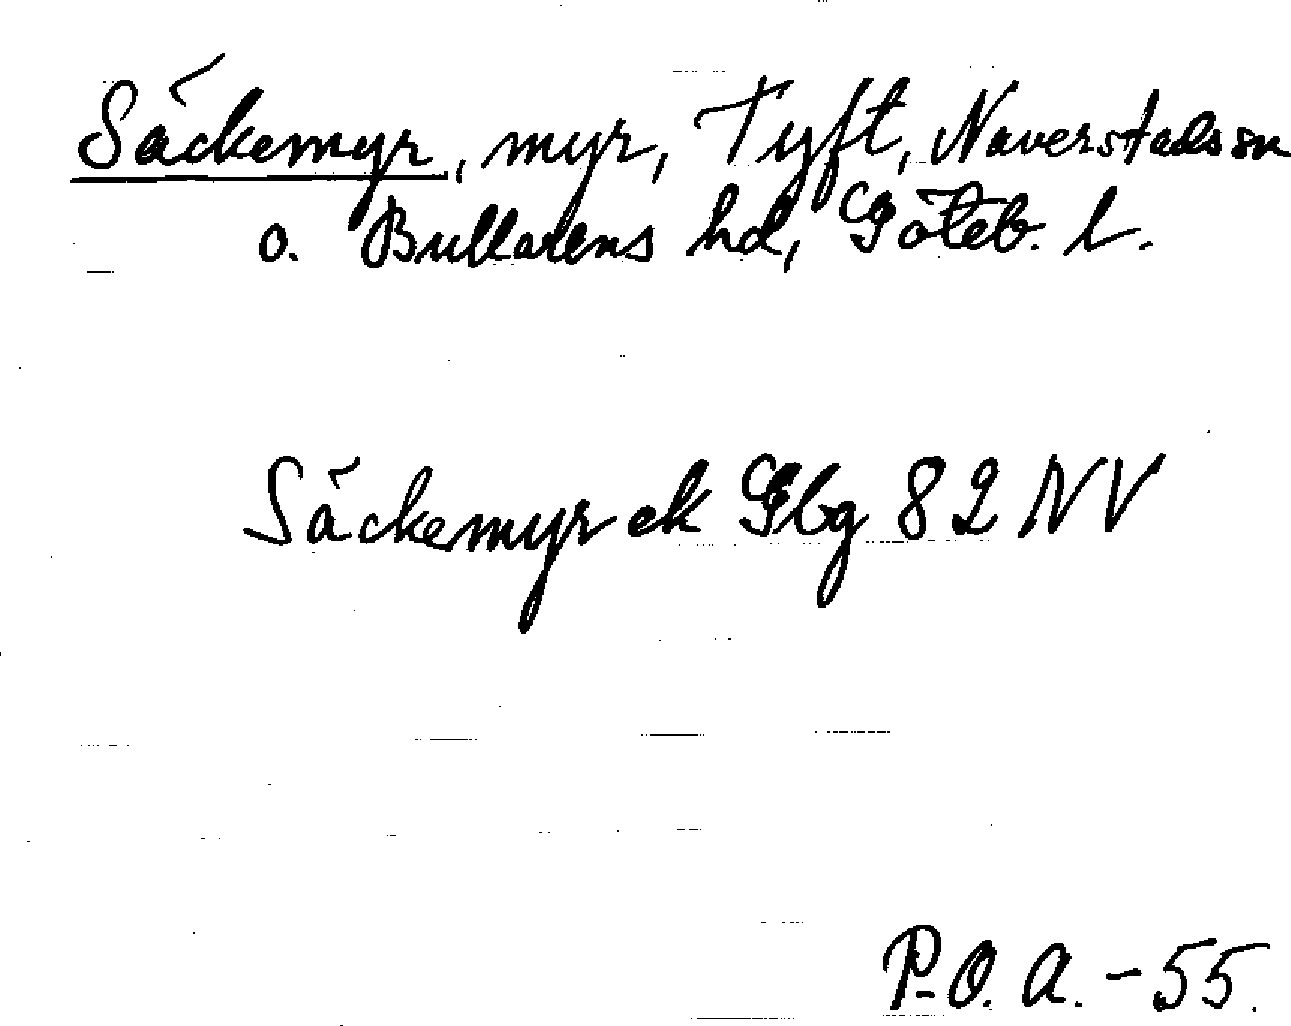 Säckemyr, myr, Tyft, Naverstads sn
o. Bullarens hd, Göteb. l.
Säckemyr ek Gbg 82 NV
P.O.A. - 55.